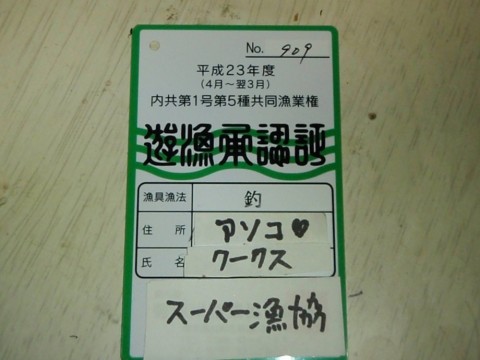 No. 909
平成23年度
(4月～翌3月)
内共第1号第5種共同漁業権
遊漁承認証
漁具漁法 釣
住所 アソコ♥
氏名 ワークス
スーパー漁協